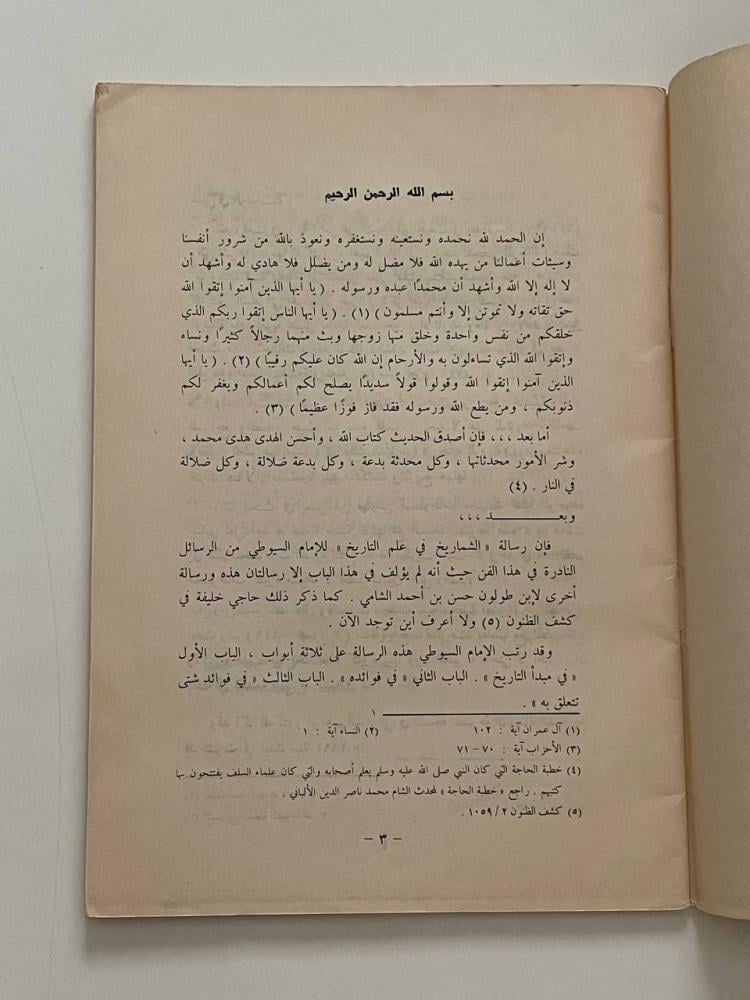 بسم الله الرحمن الرحيم
إن الحمد لله نحمده ونستعينه ونستغفره ونعوذ بالله من شرور أنفسنا
وسيئات أعمالنا من يهده الله فلا مضل له ومن يضلل فلا هادي له وأشهد أن
لا إله إلا الله وأشهد أن محمدًا عبده ورسوله . ( يا أيها الذين آمنوا إتقوا الله
حق تقاته ولا تموتن إلا وأنتم مسلمون ) (١) . ( يا أيها الناس إتقوا ربكم الذي
خلقكم من نفس واحدة وخلق منها زوجها وبث منهما رجالاً كثيرًا ونساء
وإتقوا الله الذي تساءلون به والأرحام إن الله كان عليكم رقيبًا ) (٢) . ( يا أيها
الذين آمنوا إتقوا الله وقولوا قولاً سديدًا يصلح لكم أعمالكم ويغفر لكم
ذنوبكم ، ومن يطع الله ورسوله فقد فاز فوزًا عظيمًا ) (٣) .
أما بعد ،،، فإن أصدق الحديث كتاب الله ، وأحسن الهدى هدى محمد ،
وشر الأمور محدثاتها ، وكل محدثة بدعة ، وكل بدعة ضلالة ، وكل ضلالة
في النار . (٤)
وبعـــــــــد ،،،
فإن رسالة « الشماريخ في علم التاريخ » للإمام السيوطي من الرسائل
النادرة في هذا الفن حيث أنه لم يؤلف في هذا الباب إلا رسالتان هذه ورسالة
أخرى لإبن طولون حسن بن أحمد الشامي . كما ذكر ذلك حاجي خليفة في
كشف الظنون (٥) ولا أعرف أين توجد الآن .
وقد رتب الإمام السيوطي هذه الرسالة على ثلاثة أبواب ، الباب الأول
« في مبدأ التاريخ » . الباب الثاني « في فوائده » . الباب الثالث « في فوائد شتى
تتعلق به » .
١
(١) آل عمران آية : ١٠٢ (٢) النساء آية : ١
(٣) الأحزاب آية : ٧٠ – ٧١
(٤) خطبة الحاجة التي كان النبي صلى الله عليه وسلم يعلم أصحابه والتي كان علماء السلف يفتتحون بها
كتبهم . راجع « خطبة الحاجة » لمحدث الشام محمد ناصر الدين الألباني ،
(٥) كشف الظنون ٢/ ١٠٥٩ .
– ٣ –